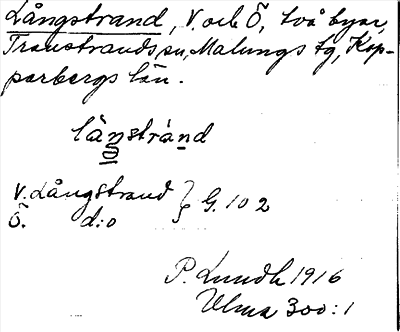 Långstrand, V. och Ö, två byar,
Transtrands sn, Malungs tg, Kop-
parbergs län.
lånstrànd
V. Långstrand } G. 102
Ö. d:o
P. Lundh 1916
Ulma 300:1